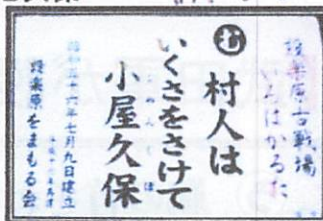 設楽原古戦場
いろはかるた
村人は
いくさをさけて
小屋久保
昭和五十六年七月九日建立
設楽原をまもる会